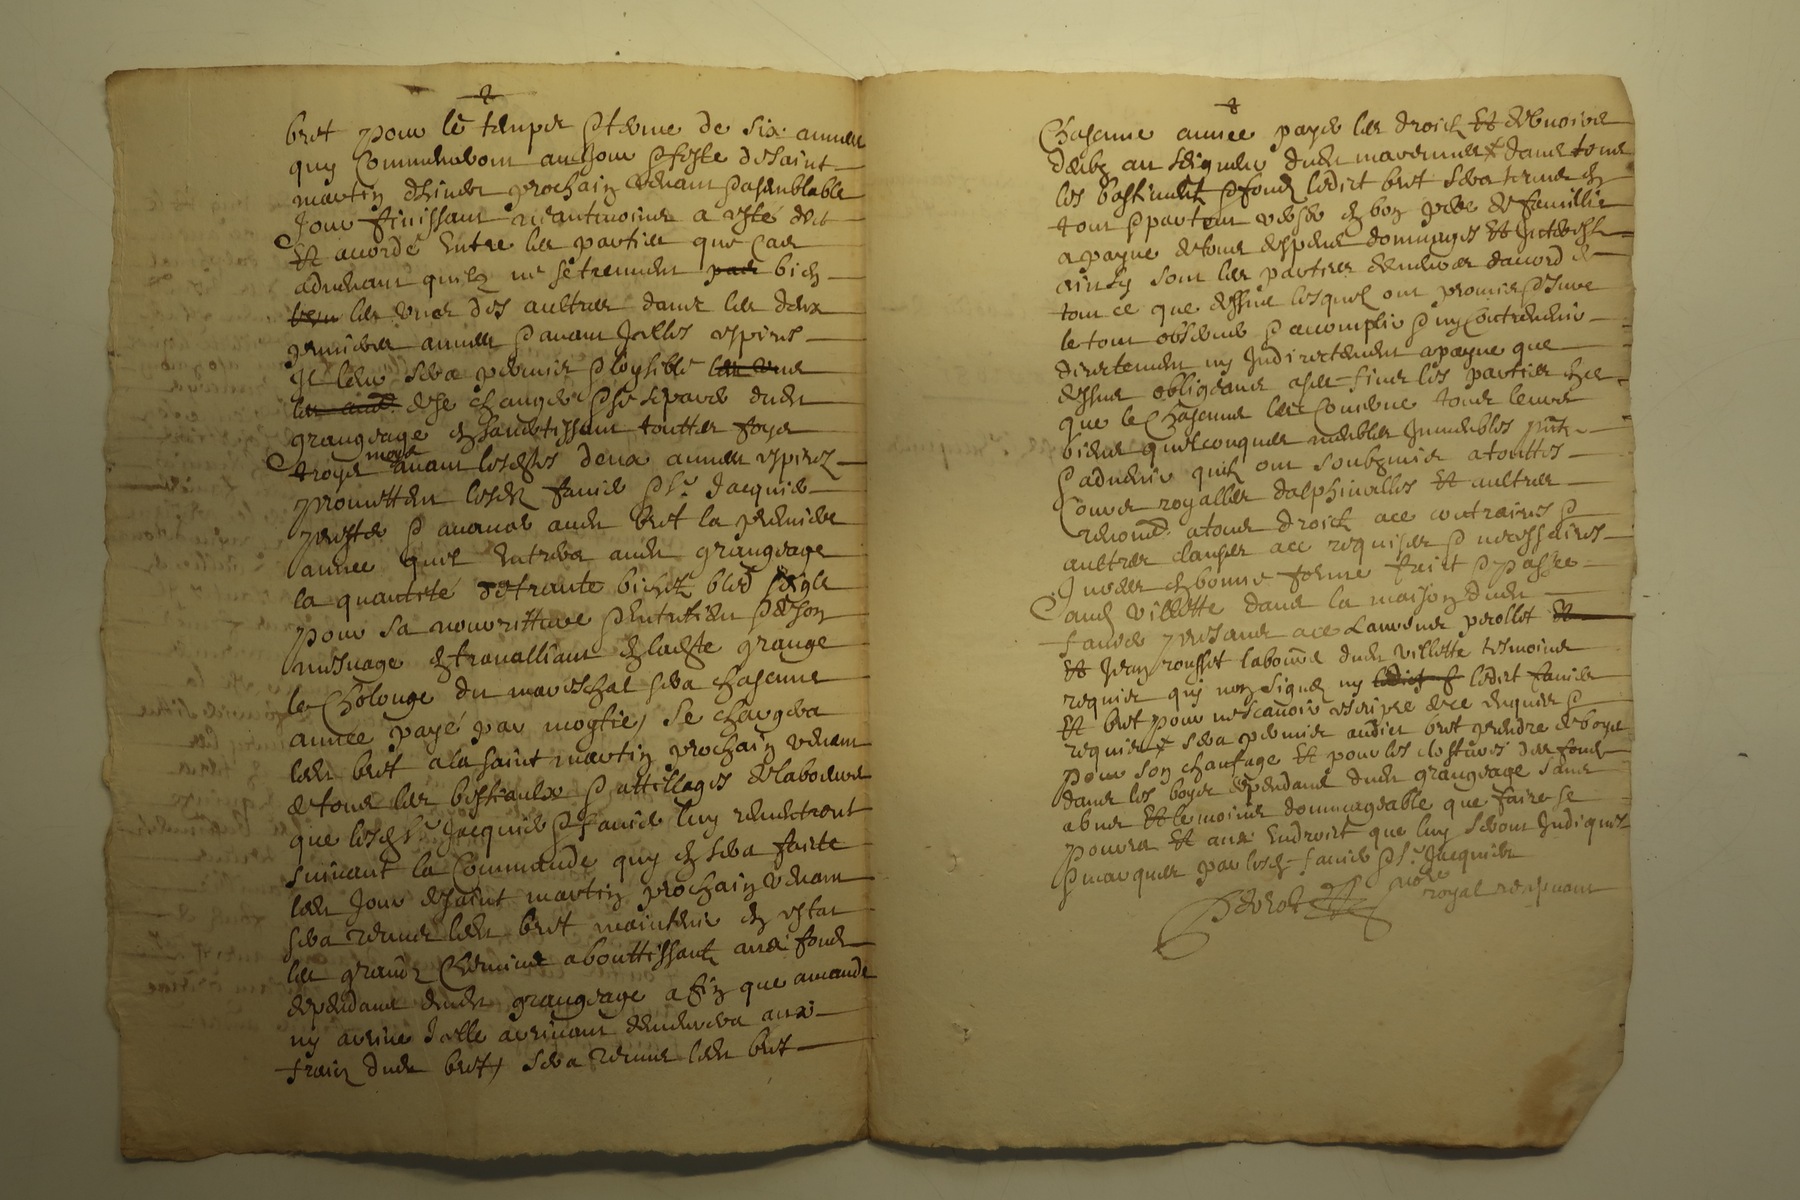 bret pour le temps & terme de six annees
quy Commenseront au Jour & feste de saint
martin dhiver prochain venant & a semblable
Jour finissant neantmoins a esté dit
Et acordé Entre les parties que Cas
advenant quilz ne se treuvent pas bien
bien les unes des aultres dans les deux
premieres annees & avant Jcelles expires
Jl leur sera permis & loysible les unes
les aud. de se changer & se separer dudit
grangeage En advertissant touttes foys
troys moys avant lesdites deux annees expirez
promettent lesdits favier & Sr Jacquier
prester & avancer audit bret la premiere
annee quil Entrera audit grangeage
la quantité de trante bichetz bled seigle
pour sa nourritture & Entretien & de son
mesnage En travalliant En ladite grange
le Cholonge du mareschal sera chascune
annee payé par moytie, se chargera
ledit bret a la saint martin prochain venant
de tous les bestiaulx & attellages de labourer
que lesdits Sr Jacquier & favier luy remettront
suivant la Commande quy En sera faicte
ledit Jour de saint martin prochain venant
sera tenu ledit bret maintenir En estat
les grandz Chemins abouttissantz aux fonds
dependans dudit grangeage afin que amande
ny arrive Jcelle arrivant demeurera aux
fraiz dudit bret, sera tenu ledit bret
Chascune annee payer les droictz Et debvoirs
deubz au seigneur dudit dans tous
les bastimentz & fondz ledict bret sera tenu En
tout & partout user En bon pere de famillie
a payne de tous despens dommages Et Jnterestz
ainsy sont les parties demeurees dacord de
tout ce que dessus lesquelz ont promis & Jure
le tout observer & acomplir & ny Contrevenir
directement ny Jndirectement a payne que
dessus obligeans a ces fins les parties Ez
que le Chascune les Conserne tous leurs
biens quelconques meubles Jmmeubles pntz
& advenir quilz ont soubzmis a touttes
Cours royalles dalphinalles Et aultres
renonct a tous droictz a ce contraires &
aultres clauses a ce requises & necessaires
En bonne forme faict & passé
aud villette dans la maison dudit
favier presans a ce Laurens perollet Et
Et Jean rousset laboure dudit villette tesmoins
requis quy nont signez ny ledict f ledict favier
Et bret pour ne scavoir escripre de ce enquis &
requis sera permis audict bret prendre de boys
pour son chaufage Et pour les clostures des fonds
dans les boys dependans dudit grangeage sans
abus Et le moins dommageable que faire se
pourra Et aux Endroict que luy seront Jndiquez
& marquez par lesd favier & Sr Jacquier
nore royal